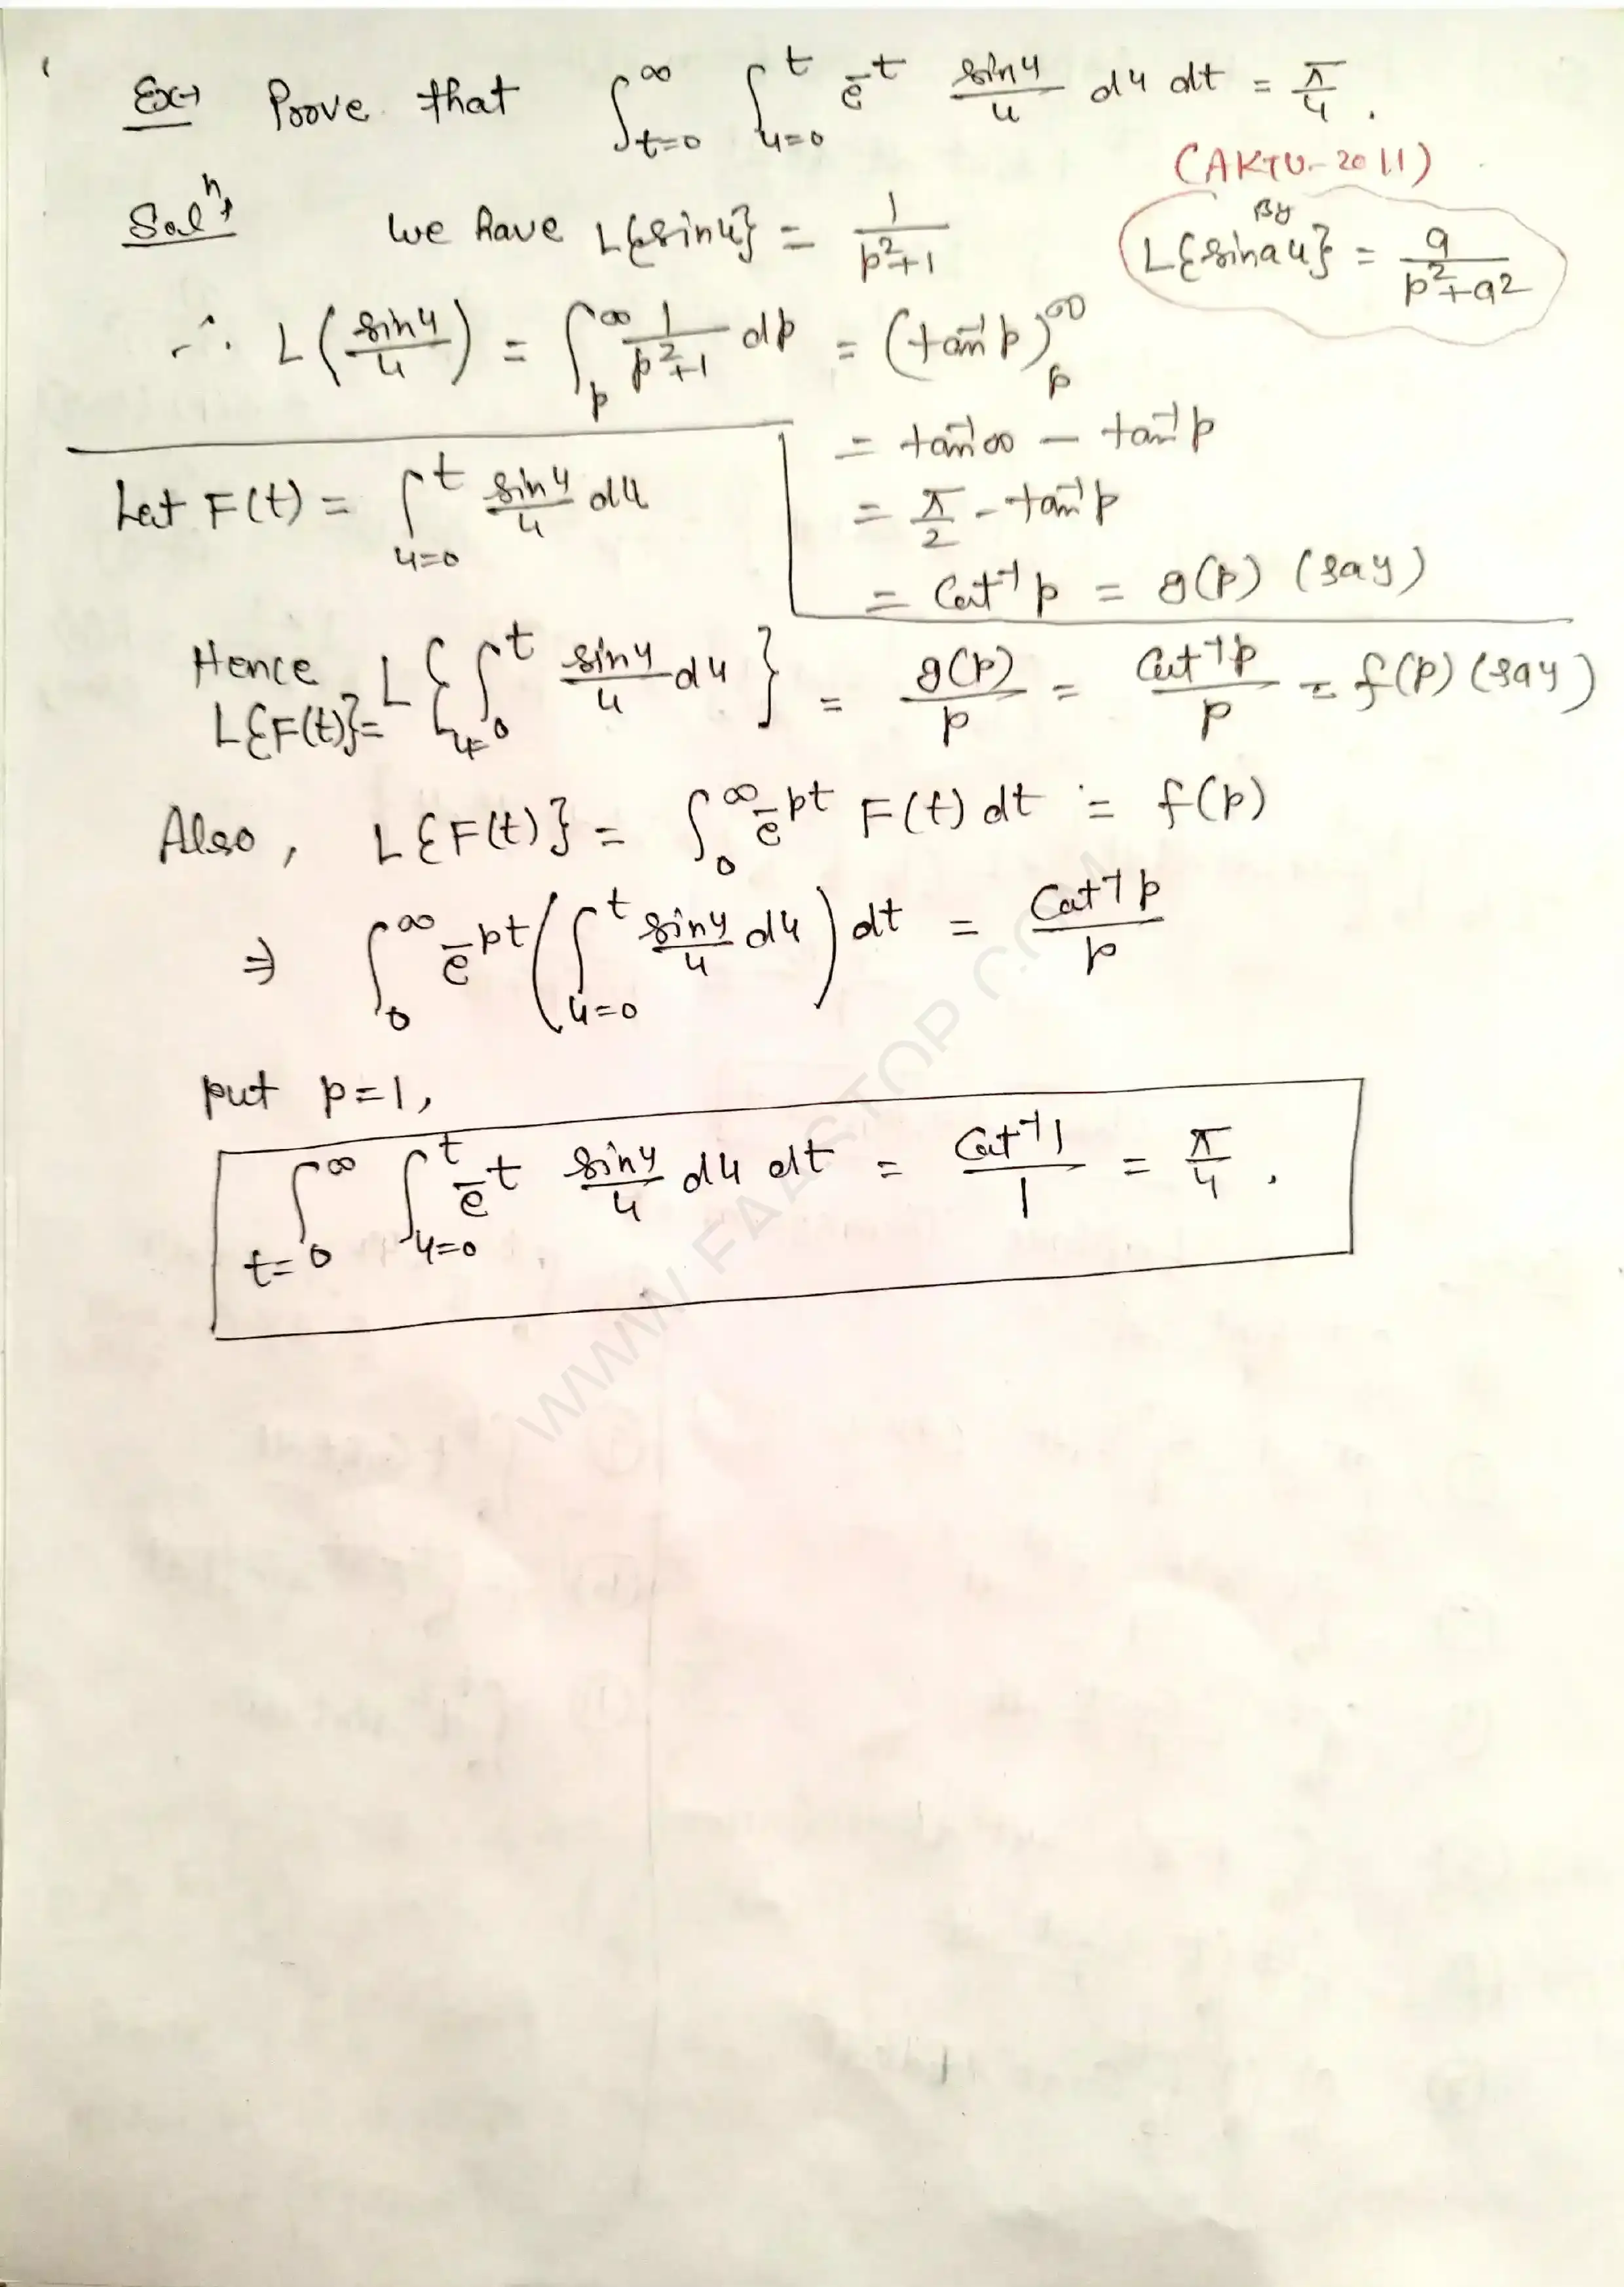 Ex→ Prove that ∫_{t=0}^{∞} ∫_{u=0}^{t} e^{-t} (sin u)/u du dt = π/4.
(AKTU-2011)
Solⁿ→ We have L{sin u} = 1/(p²+1)
By L{sin au} = a/(p²+a²)
∴ L((sin u)/u) = ∫_{p}^{∞} 1/(p²+1) dp = (tan⁻¹p)_{p}^{∞}
= tan⁻¹∞ − tan⁻¹p
= π/2 − tan⁻¹p
= Cot⁻¹p = g(p) (say)
Let F(t) = ∫_{u=0}^{t} (sin u)/u du
Hence L{F(t)} = L{∫_{u=0}^{t} (sin u)/u du} = g(p)/p = Cot⁻¹p/p = f(p) (say)
Also, L{F(t)} = ∫_{0}^{∞} e^{-pt} F(t) dt = f(p)
⇒ ∫_{0}^{∞} e^{-pt} (∫_{u=0}^{t} (sin u)/u du) dt = Cot⁻¹p/p
put p=1,
∫_{t=0}^{∞} ∫_{u=0}^{t} e^{-t} (sin u)/u du dt = Cot⁻¹1/1 = π/4.
WWW.FAASTOP.COM